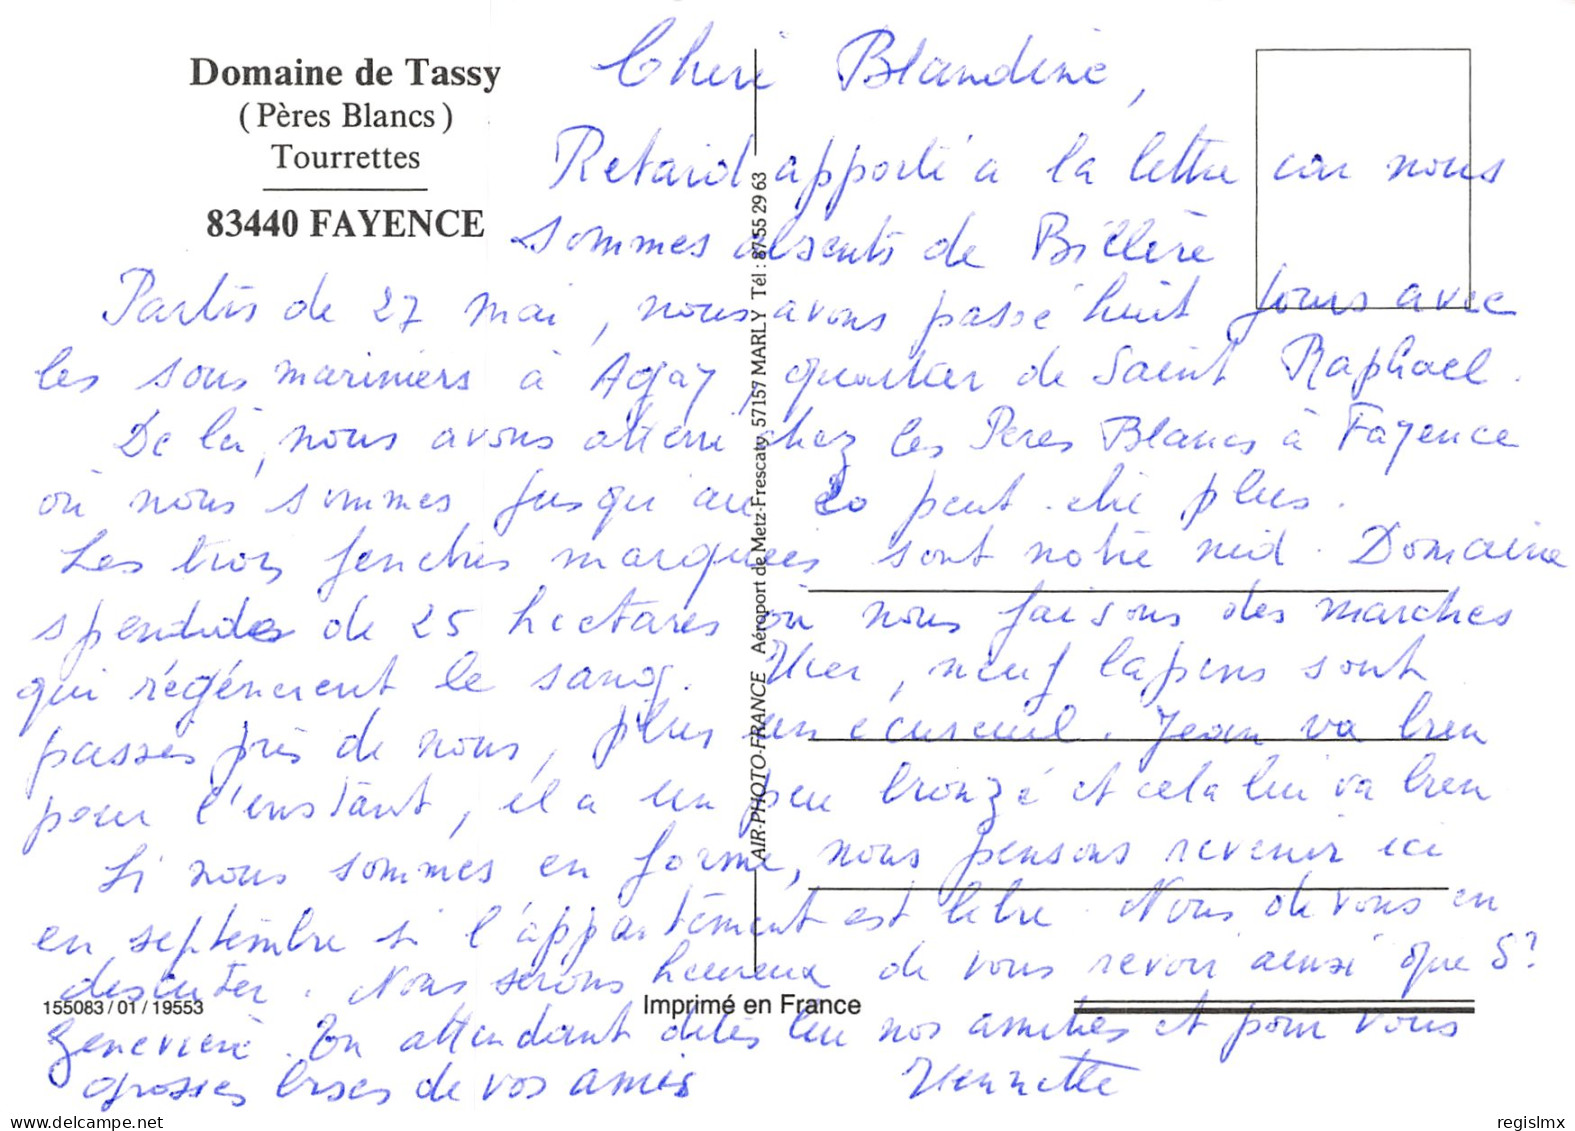 Domaine de Tassy
(Pères Blancs)
Tourrettes
83440 FAYENCE
Cheri Blandine,
Retard apporté a la lettre car nous
sommes absents de Billère
Partis de 27 mai, nous avons passé huit jours avec
les sous mariniers à Agay, quartier de Saint Raphael.
De là, nous avons atterri chez les Peres Blancs à Fayence
où nous sommes jusqu'au 20 peut-etre plus.
Les trois fenetres marquées sont notre nid. Domaine
spendide de 25 hectares où nous faisons des marches
qui régénerent le sang. Hier, neuf lapins sont
passes près de nous, plus un écureuil. Jean va bien
pour l'instant, il a un peu bronzé et cela lui va bien
Si nous sommes en forme, nous pensons revenir ici
en septembre si l'appartement est libre. Nous devons en
discuter. Nous serons heureux de vous revoir ainsi que S?
Genevieve. En attendant dites lui nos amities et pour vous
grosses bises de vos amis Hennette
AIR-PHOTO-FRANCE Aéroport de Metz-Frescaty 57157 MARLY Tél : 87 55 29 63
155083/01/19553
Imprimé en France
www.delcampe.net
regislmx